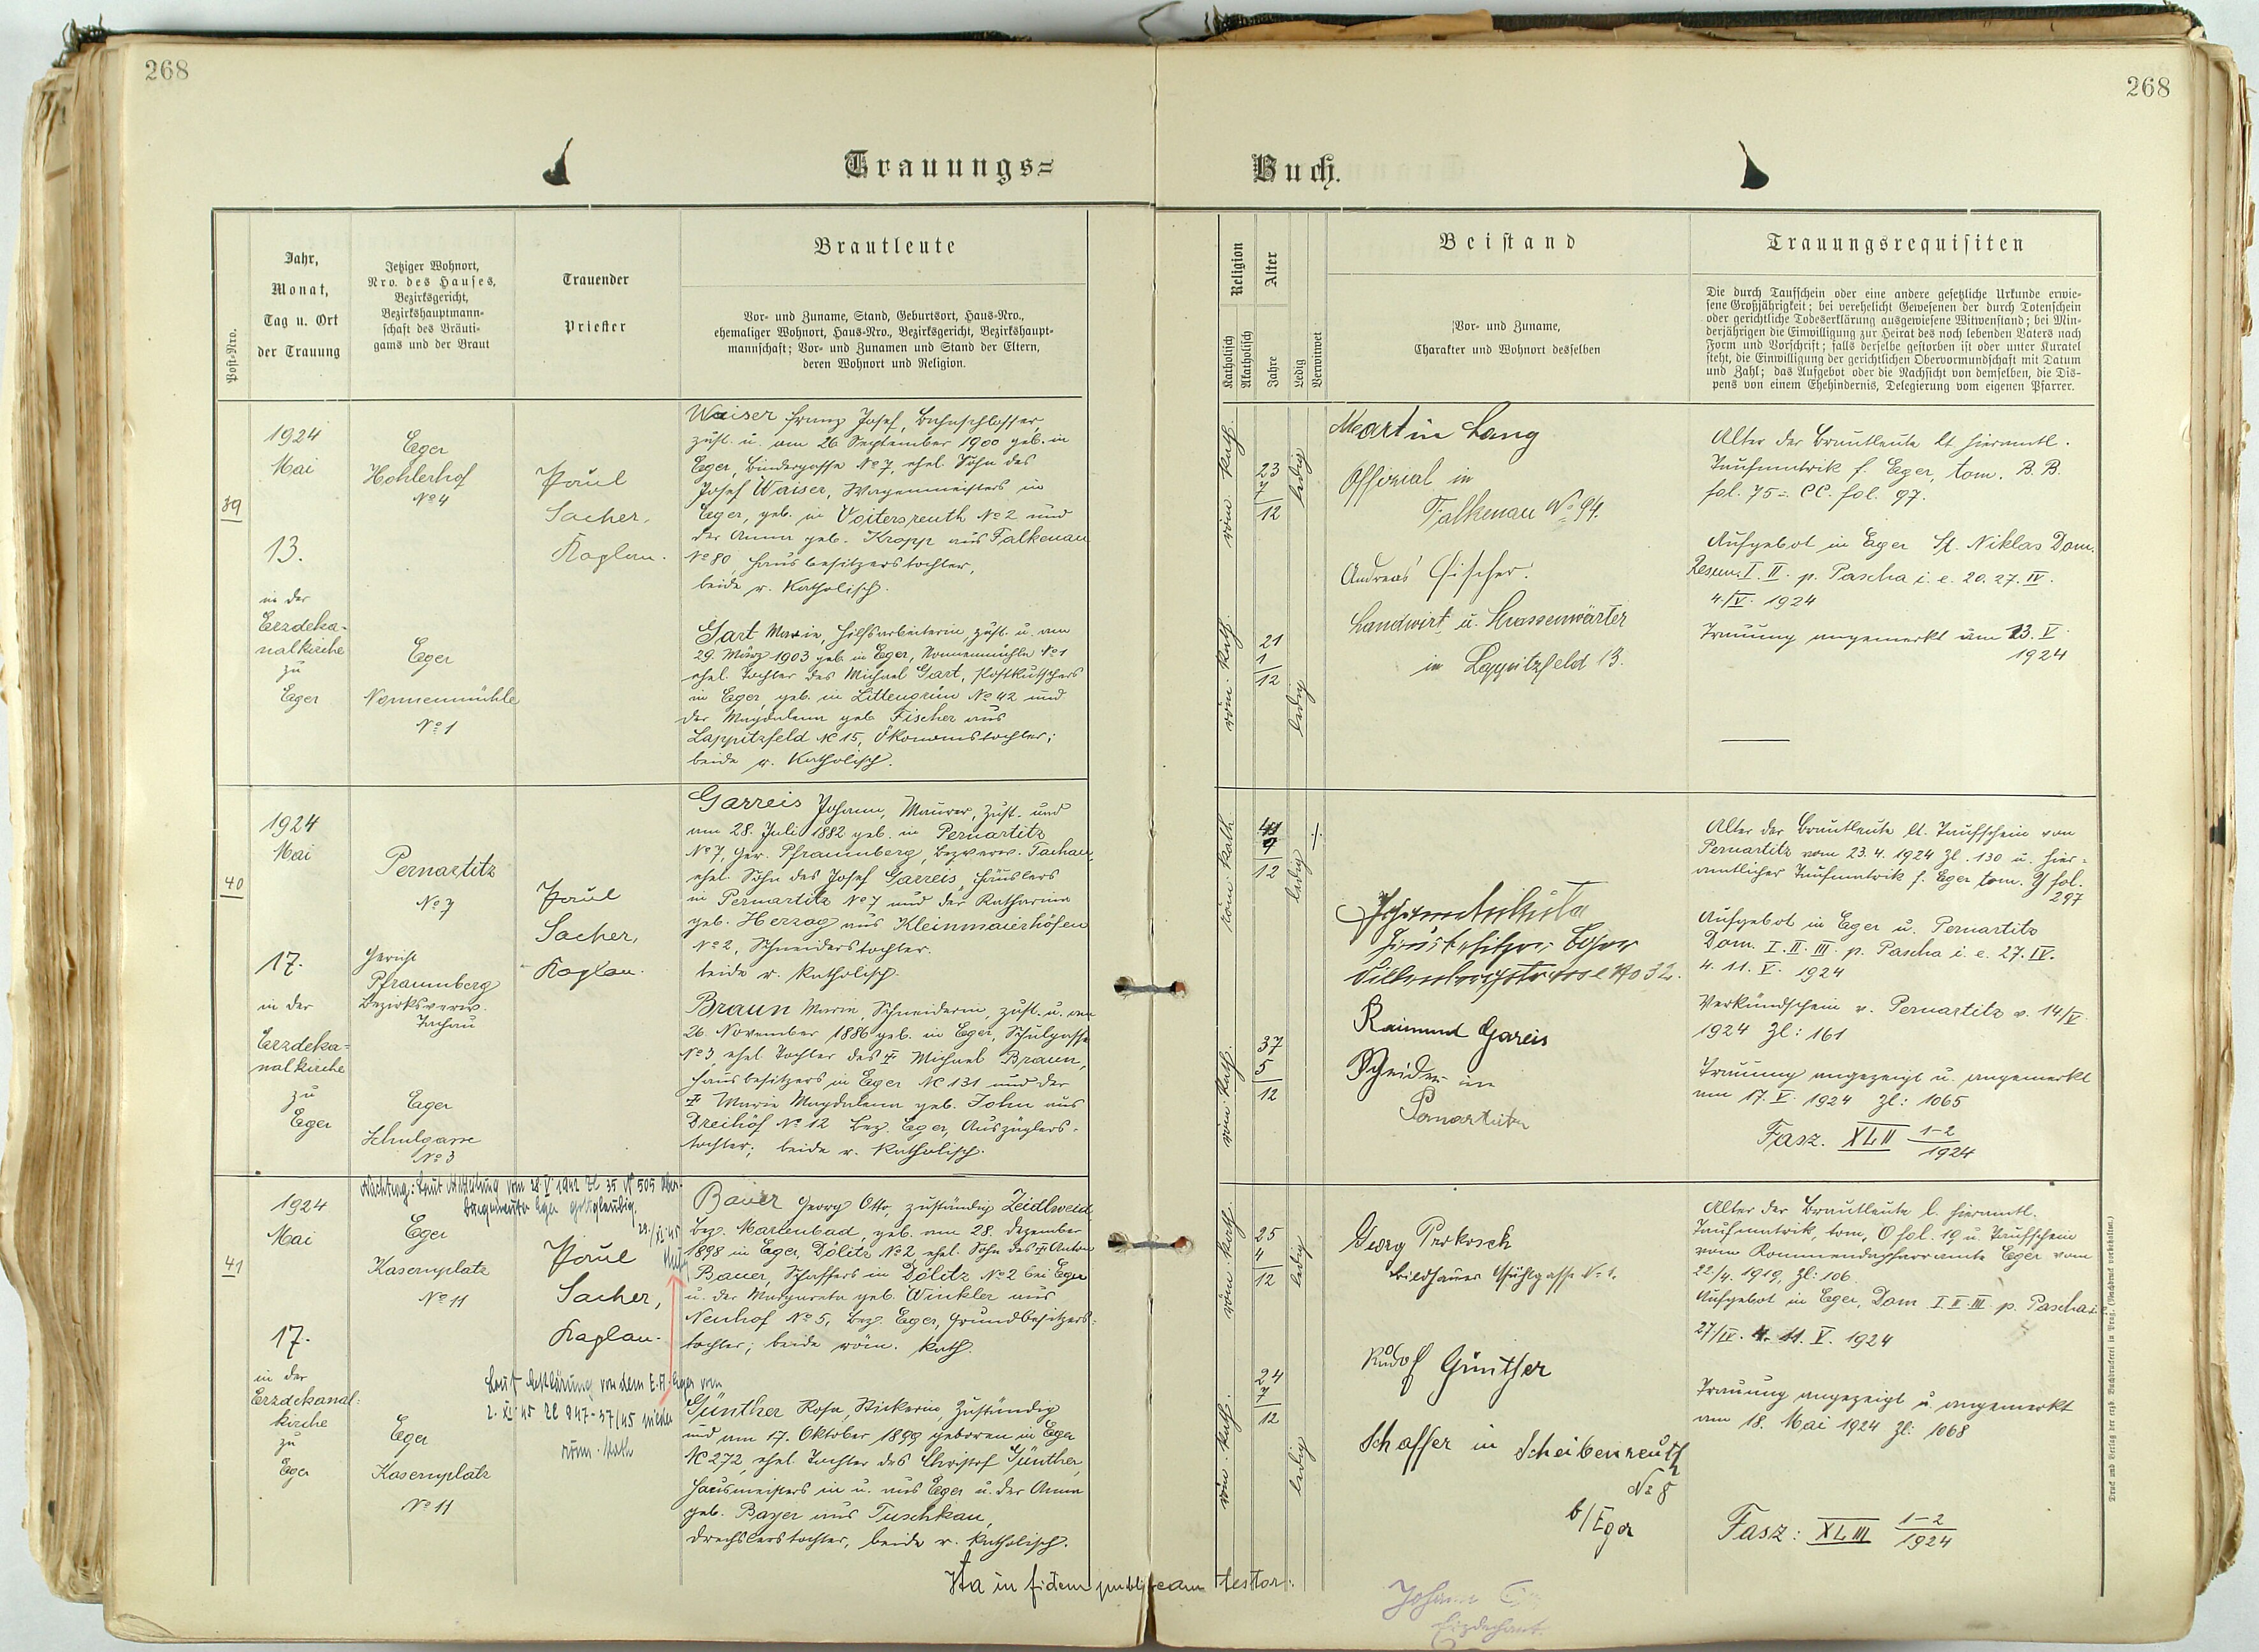 268
268
Trauungs=
Buch.
Post-Nro.
Jahr,
Monat,
Tag u. Ort
der Trauung
Jetziger Wohnort,
Nro. des Hauses,
Bezirksgericht,
Bezirkshauptmann-
schaft des Bräuti-
gams und der Braut
Trauender
Priester
Brautleute
Vor- und Zuname, Stand, Geburtsort, Haus-Nro.,
ehemaliger Wohnort, Haus-Nro., Bezirksgericht, Bezirkshaupt-
mannschaft; Vor- und Zunamen und Stand der Eltern,
deren Wohnort und Religion.
Religion
Katholisch
Akatholisch
Alter
Jahre
Ledig
Verwitwet
Beistand
Vor- und Zuname,
Charakter und Wohnort desselben
Trauungsrequisiten
Die durch Taufschein oder eine andere gesetzliche Urkunde erwie-
sene Großjährigkeit; bei verehelicht Gewesenen der durch Totenschein
oder gerichtliche Todeserklärung ausgewiesene Witwenstand; bei Min-
derjährigen die Einwilligung zur Heirat des noch lebenden Vaters nach
Form und Vorschrift; falls derselbe gestorben ist oder unter Kuratel
steht, die Einwilligung der gerichtlichen Obervormundschaft mit Datum
und Zahl; das Aufgebot oder die Nachsicht von demselben, die Dis-
pens von einem Ehehindernis, Delegierung vom eigenen Pfarrer.
39
1924
Mai
13.
in der
Erzdeka-
nalkirche
zu
Eger
Eger
Hohlerhof
No 4
Eger
Nonnenmühle
No 1
Paul
Sacher,
Kaplan.
Waiser Franz Josef, Bahnschlosser,
zust. u. am 26. September 1900 geb. in
Eger, Bindergasse No 7, ehel. Sohn des
Josef Waiser, Wagenmeisters in
Eger, geb. in Voitersreuth No 2 und
der Anna geb. Kropp aus Falkenau
No 80, Hausbesitzerstochter,
beide r. katholisch.
Gart Marie, Hilfsarbeiterin, zust. u. am
29. März 1903 geb. in Eger, Nonnenmühle No 1
ehel. Tochter des Michael Gart, Postkutschers
in Eger, geb. in Littengrün No 42 und
der Magdalena geb. Fischer aus
Lappitzfeld No 15, Ökonomstochter;
beide r. katholisch.
röm. kath.
23
7
12
ledig
röm. kath.
21
1
12
ledig
Martin Lang
Offizial in
Falkenau No 94.
Andreas Fischer.
Landwirt u. Strassenwärter
in Lappitzfeld 13.
Alter der Brautleute lt hieramtl.
Taufmatrik f. Eger, tom. B. B.
fol. 75 = CC. fol. 97.
Aufgebot in Eger St. Niklas Dom.
I. II. p. Pascha i. e. 20. 27. IV.
4./V. 1924
Trauung angemerkt am 13. V.
1924
40
1924
Mai
17.
in der
Erzdeka=
nalkirche
zu
Eger
Pernartitz
No 7
Gericht
Pfraumberg
Bezirksverw.
Tachau
Eger
Schulgasse
No 3
Paul
Sacher,
Kaplan.
Garreis Johann, Maurer, zust. und
am 28. Juli 1882 geb. in Pernartitz
No 7, Ger. Pfraumberg, Bezverw. Tachau,
ehel. Sohn des Josef Garreis, Häuslers
in Pernartitz No 7 und der Katharina
geb. Herzog aus Kleinmaierhöfen
No 2, Schneiderstochter.
beide r. katholisch.
Braun Marie, Schneiderin, zust. u. am
26. November 1886 geb. in Eger, Schulgasse
No 3 ehel. Tochter des † Michael Braun,
Hausbesitzers in Eger No 131 und der
† Marie Magdalena geb. John aus
Dreihöf No 12 Bez. Eger, Auszüglers-
tochter; beide r. katholisch.
röm. kath
41
9
12
ledig
röm. kath.
37
5
12
Hausbesitzer Eger
No 32.
Raimund Gareis
Schneider in
Pernartitz
Alter der Brautleute lt. Taufschein von
Pernartitz vom 23. 4. 1924 Zl. 130 u. hier=
amtlicher Taufmatrik f. Eger tom. Y fol.
297
Aufgebot in Eger u. Pernartitz
Dom. I. II. III. p. Pascha i. e. 27. IV.
4. 11. V. 1924
Verkündschein v. Pernartitz v. 14/V.
1924 Zl: 161
Trauung angezeigt u. angemerkt
am 17. V. 1924 Zl: 1065
Fasz. XLII 1-2
1924
Nachtrag: Laut Mitteilung vom 28. V. 1942 Zl 35 No 505 Ober-
bürgermeister Eger gottgläubig.
41
1924
Mai
17.
in der
Erzdekanal-
kirche
zu
Eger
Eger
Kasernplatz
No 11
Eger
Kasernplatz
No 11
Paul
Sacher,
Kaplan.
Laut Erklärung vor dem E.A. Eger vom
2. XI. 45 Zl 947-37/45 wieder
röm. kath
Bauer Georg Otto, zuständig Zeidlweid
Bez. Marienbad, geb. am 28. Dezember
1898 in Eger, Dölitz No 2 ehel. Sohn des † Anton
Bauer, Schaffers in Dölitz No 2 bei Eger
u. der Margareta geb. Winkler aus
Neuhof No 5, Bez. Eger, Grundbesitzers-
tochter; beide röm. kath.
Günther Rosa, Stickerin zuständig
und am 17. Oktober 1899 geboren in Eger
No 272, ehel. Tochter des Christof Günther,
Hausmeisters in u. aus Eger u. der Anna
geb. Bayer aus Tuschkau,
Drechslerstochter, beide r. katholisch.
röm. kath.
25
4
12
ledig
röm. kath.
24
7
12
ledig
Georg Prokosch
Bildhauer Mühlgasse No 1.
Rudolf Günther
Schaffer in Scheibenreuth
No 8
b/Eger
Alter der Brautleute l. hieramtl.
Taufmatrik, tom. O fol. 19 u. Taufschein
vom Kommendapfarramte Eger vom
22./4. 1919, Zl: 106.
Aufgebot in Eger, Dom I. II. III. p. Pascha i.
27/IV. 4. 11. V. 1924
Trauung angezeigt u. angemerkt
am 18. Mai 1924 Zl: 1068
Fasz: XLIII 1-2
1924
Ita in fidem publicam testor:
Johann
Erzdechant.
Druck und Verlag der erzb. Buchdruckerei in Prag. (Nachdruck vorbehalten.)